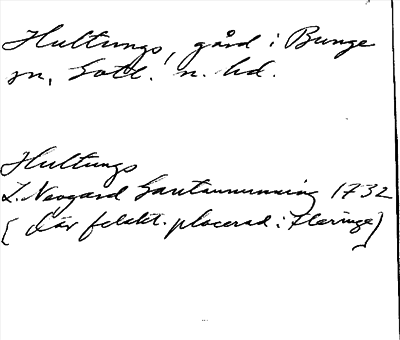 Hultungs, gård i Bunge
sn, Gotl. n. hd.
Hultungs
L. Neogard Gautauminning 1732
[där felakt. placerad i Fleringe]